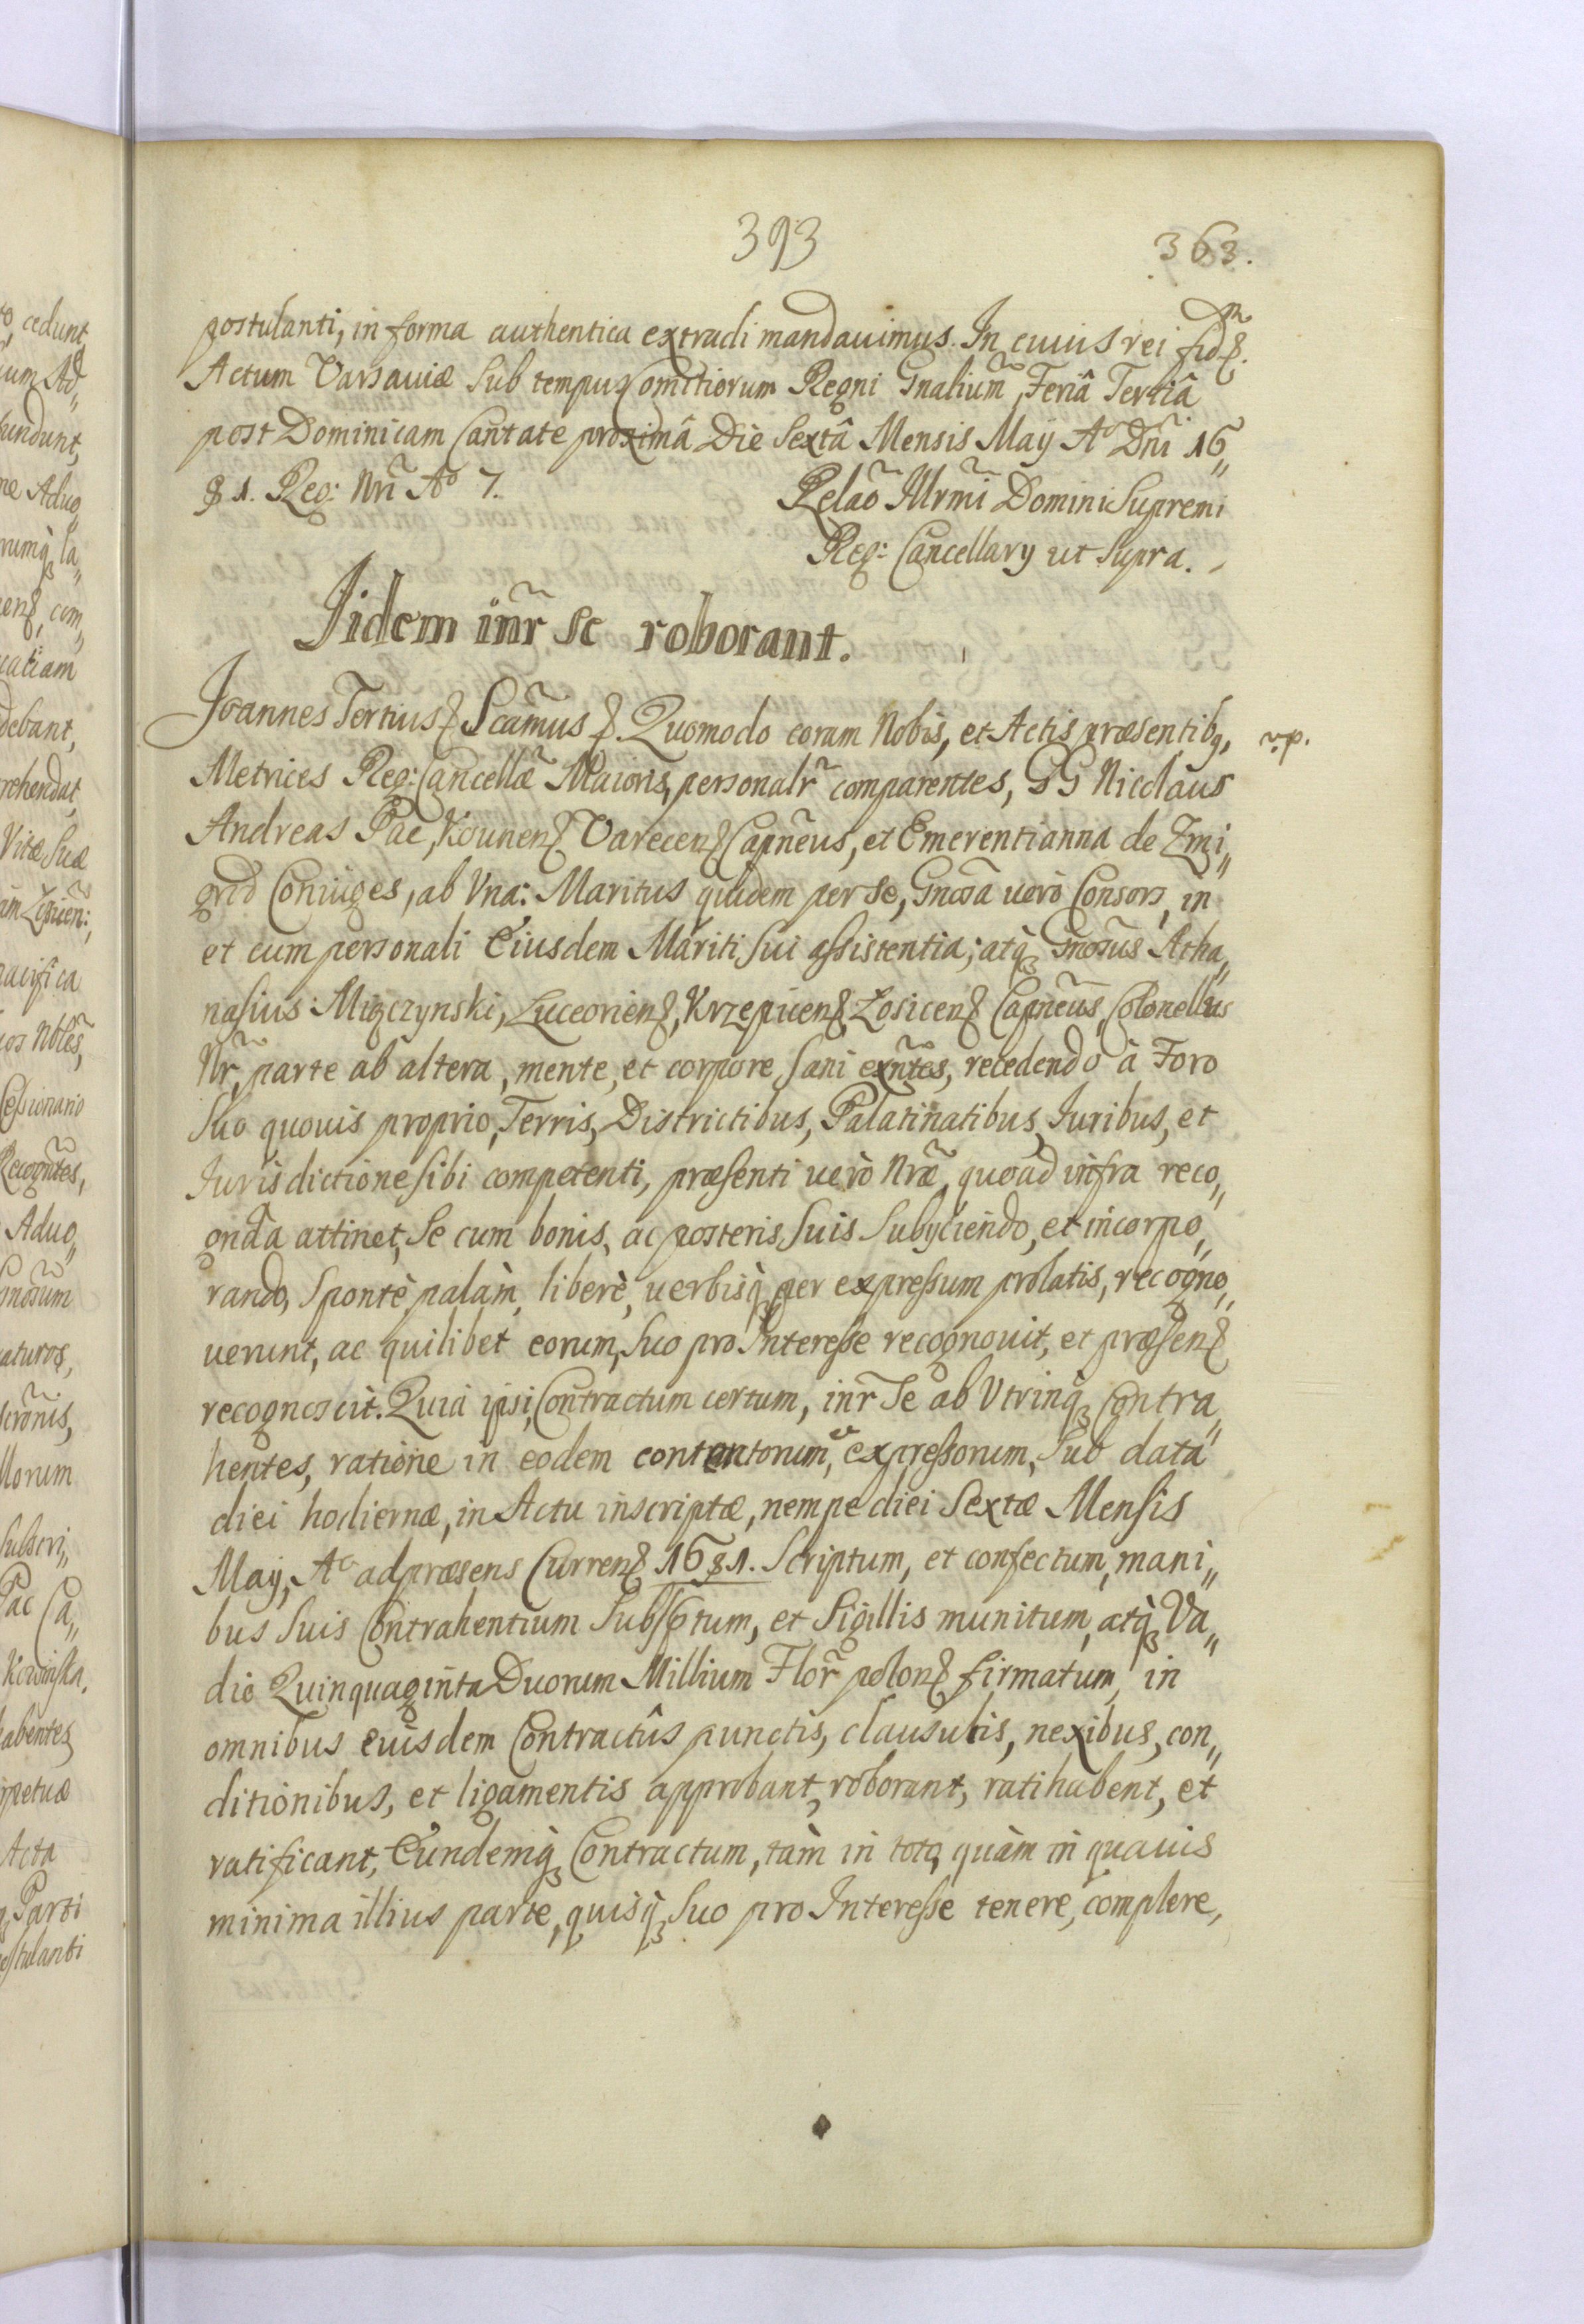 393
363.
postulanti, in forma authentica extradi mandauimus. In cuius rei fidẽ.
Actum Varsauiæ Sub tempus Comitiorum Regni Gnalium̃, Feriâ Tertiâ
post Dominicam Cantate proximâ Die Sextâ Mensis Maÿ A° Dñi 16„
81. Reg: Nri̴ A° 7.
Relaõ Illrmi̴ Domini Supremi
Reg: Cancellarÿ ut Supra.
Iidem inr̃ se roborant.
Joannes Tertius & Scam̃us &. Quomodo coram Nobis, et Actis præsentibq,
r. p.
Metrices Reg: Cancellæ̃ Maioris, personalr̃ comparentes, GG Nicolaus
Andreas Pac, Kounen& Varecen& Capñeus, et Emerentianna de Zmi„
grid Coniuges, ab Vna: Maritus quidem per se, Gnosã uerò Consors, in
et cum personali Eiusdem Mariti Sui assistentia; atq̀ Gnosus̃ Atha„
nasius Miączynski, Luceorien&, Krzepicen& Łosicen& Capñeus, Colonellus
Nr̃, parte ab altera, mente, et corpore Sani exñtes, recedendo à Foro
Suo quouis proprio, Terris, Districtibus, Palatinatibus, Juribus, et
Jurisdictione sibi competenti, præsenti uerò Nræ̃, quoad infra reco„
gnda̴ attinet, Se cum bonis, ac posteris Suis Subÿciendo, et incorpo„
rando, Spontè, palàm, liberè, uerbisq̀ per expressum prolatis, recogno„
uerunt, ac quilibet eorum, Suo pro Interesse recognouit, et præsen&
recognoscit. Quia ipsi, Contractum certum, inr̃ Se ab Vtrinq̀ Contra„
hentes, ratione in eodem contentorum, expressorum, Sub data
diei hodiernæ, in Actu inscriptæ, nempe diei Sextæ Mensis
Maÿ, A° ad præsens Curren& 1681. Scriptum, et confectum, mani„
bus Suis Contrahentium Subsptum, et Sigillis munitum, atq̀ Va„
dio Quinquaginta Duorum Millium Flor̃ polon& firmatum, in
omnibus eiusdem Contractûs punctis, clausulis, nexibus, con„
ditionibus, et ligamentis approbant, roborant, ratihabent, et
ratificant, Eundemq̀ Contractum, tàm in toto, quàm in quauis
minima illius parte, quisq̀ Suo pro Interesse tenere, complere,